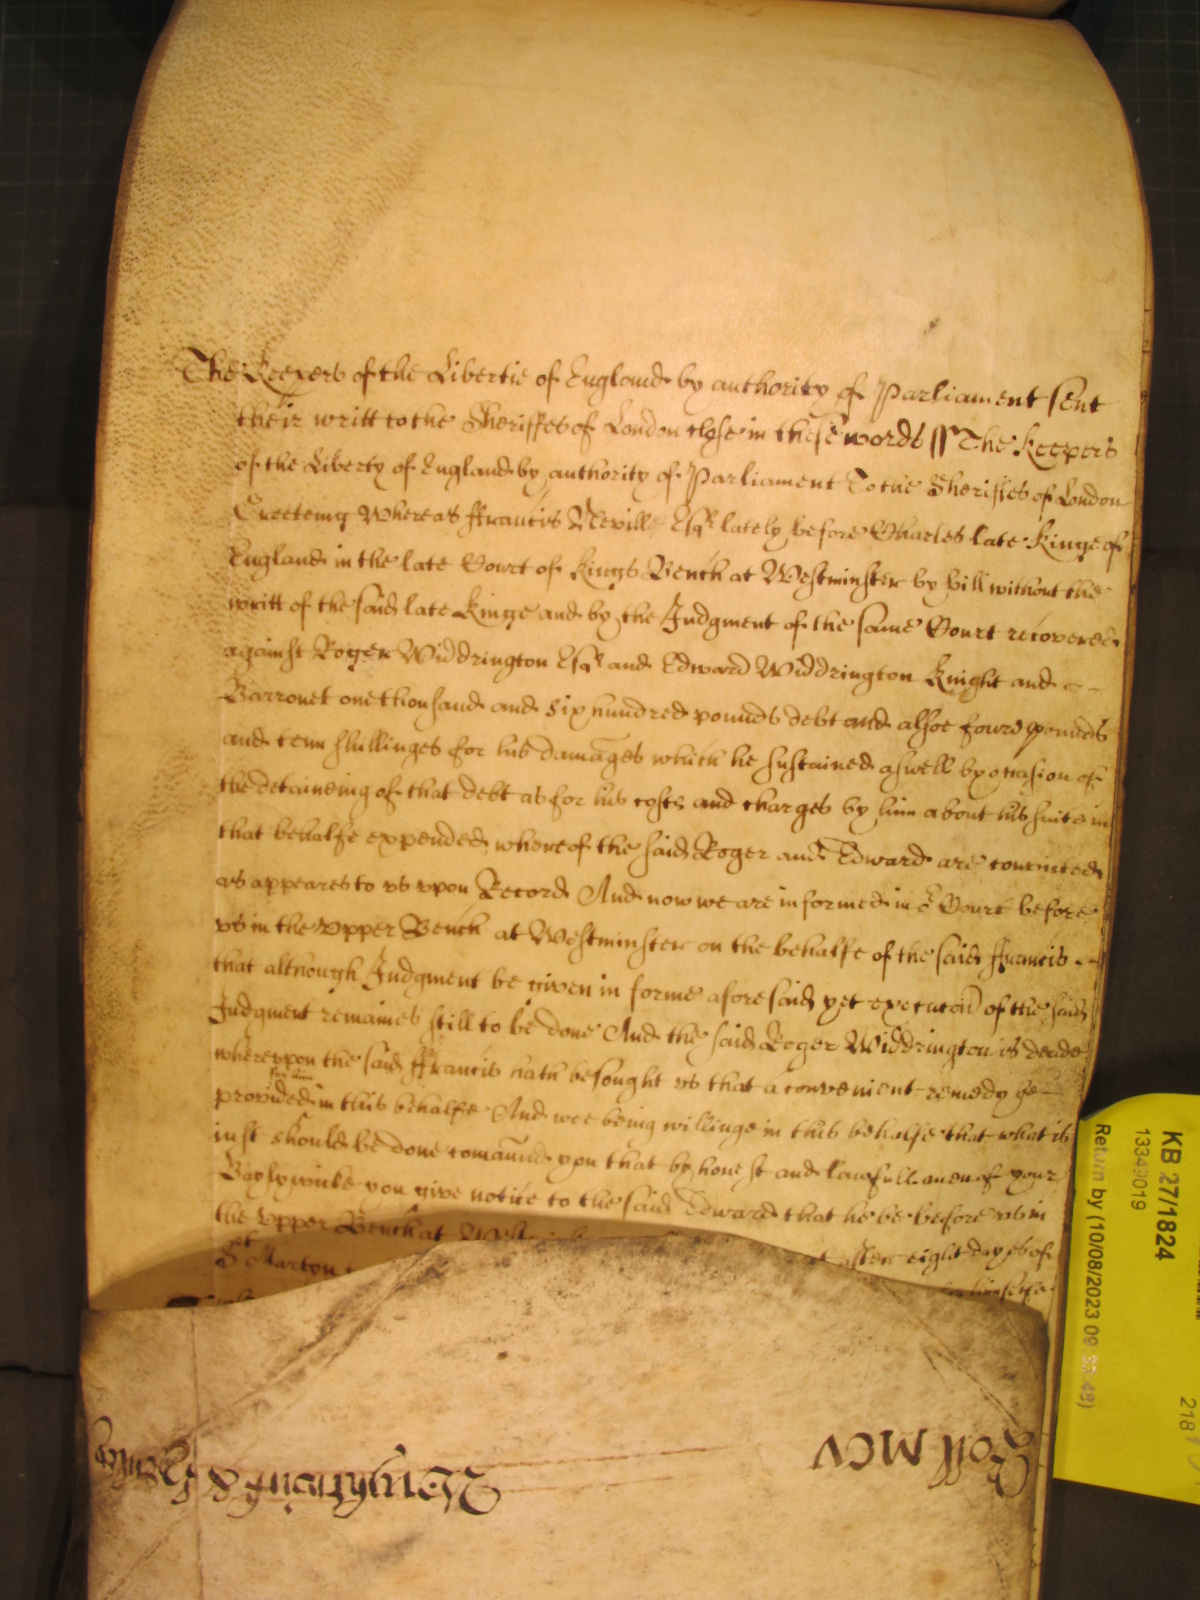 The Keepers of the Libertie of England by authority of Parliament sent
their writt to the Sheriffes of London close in these words ss The Keepers
of the Liberty of England by authority of Parliament To the Sheriffes of London
Greeteing Whereas ffrancis Nevill Esqr lately before Charles late Kinge of
England in the late Court of Kings Bench at Westminster by bill without the
writt of the said late Kinge and by the Judgment of the same Court recovered
against Roger Widdrington Esqr and Edward Widdrington Knight and
Barronet one thousand and six hundred pounds debt and alsoe fourd pounds
and tenn shillinges for his damages which he sustained aswell by occasion of
the detaineing of that debt as for his costs and charges by him about his suite in
that behalfe expended whereof the said Roger and Edward are convicted
as appeares to vs vpon Record And now we are informed in or Court before
vs in the vpper Bench at Westminster on the behalfe of the said ffrancis
that although Judgment be given in forme aforesaid yet execucon of the said
Judgment remaines still to be done And the said Roger Widdrington is deade
wherevpon the said ffrancis hath besought vs that a convenient remedy be
provided for him in this behalfe And wee being willinge in this behalfe that what is
iust should be done comaund you that by honest and lawfull men of your
Baylywicke you give notice to the said Edward that he be before vs in
the vpper Bench at after eight dayes of
St Martyn himselfe
Roll MCV